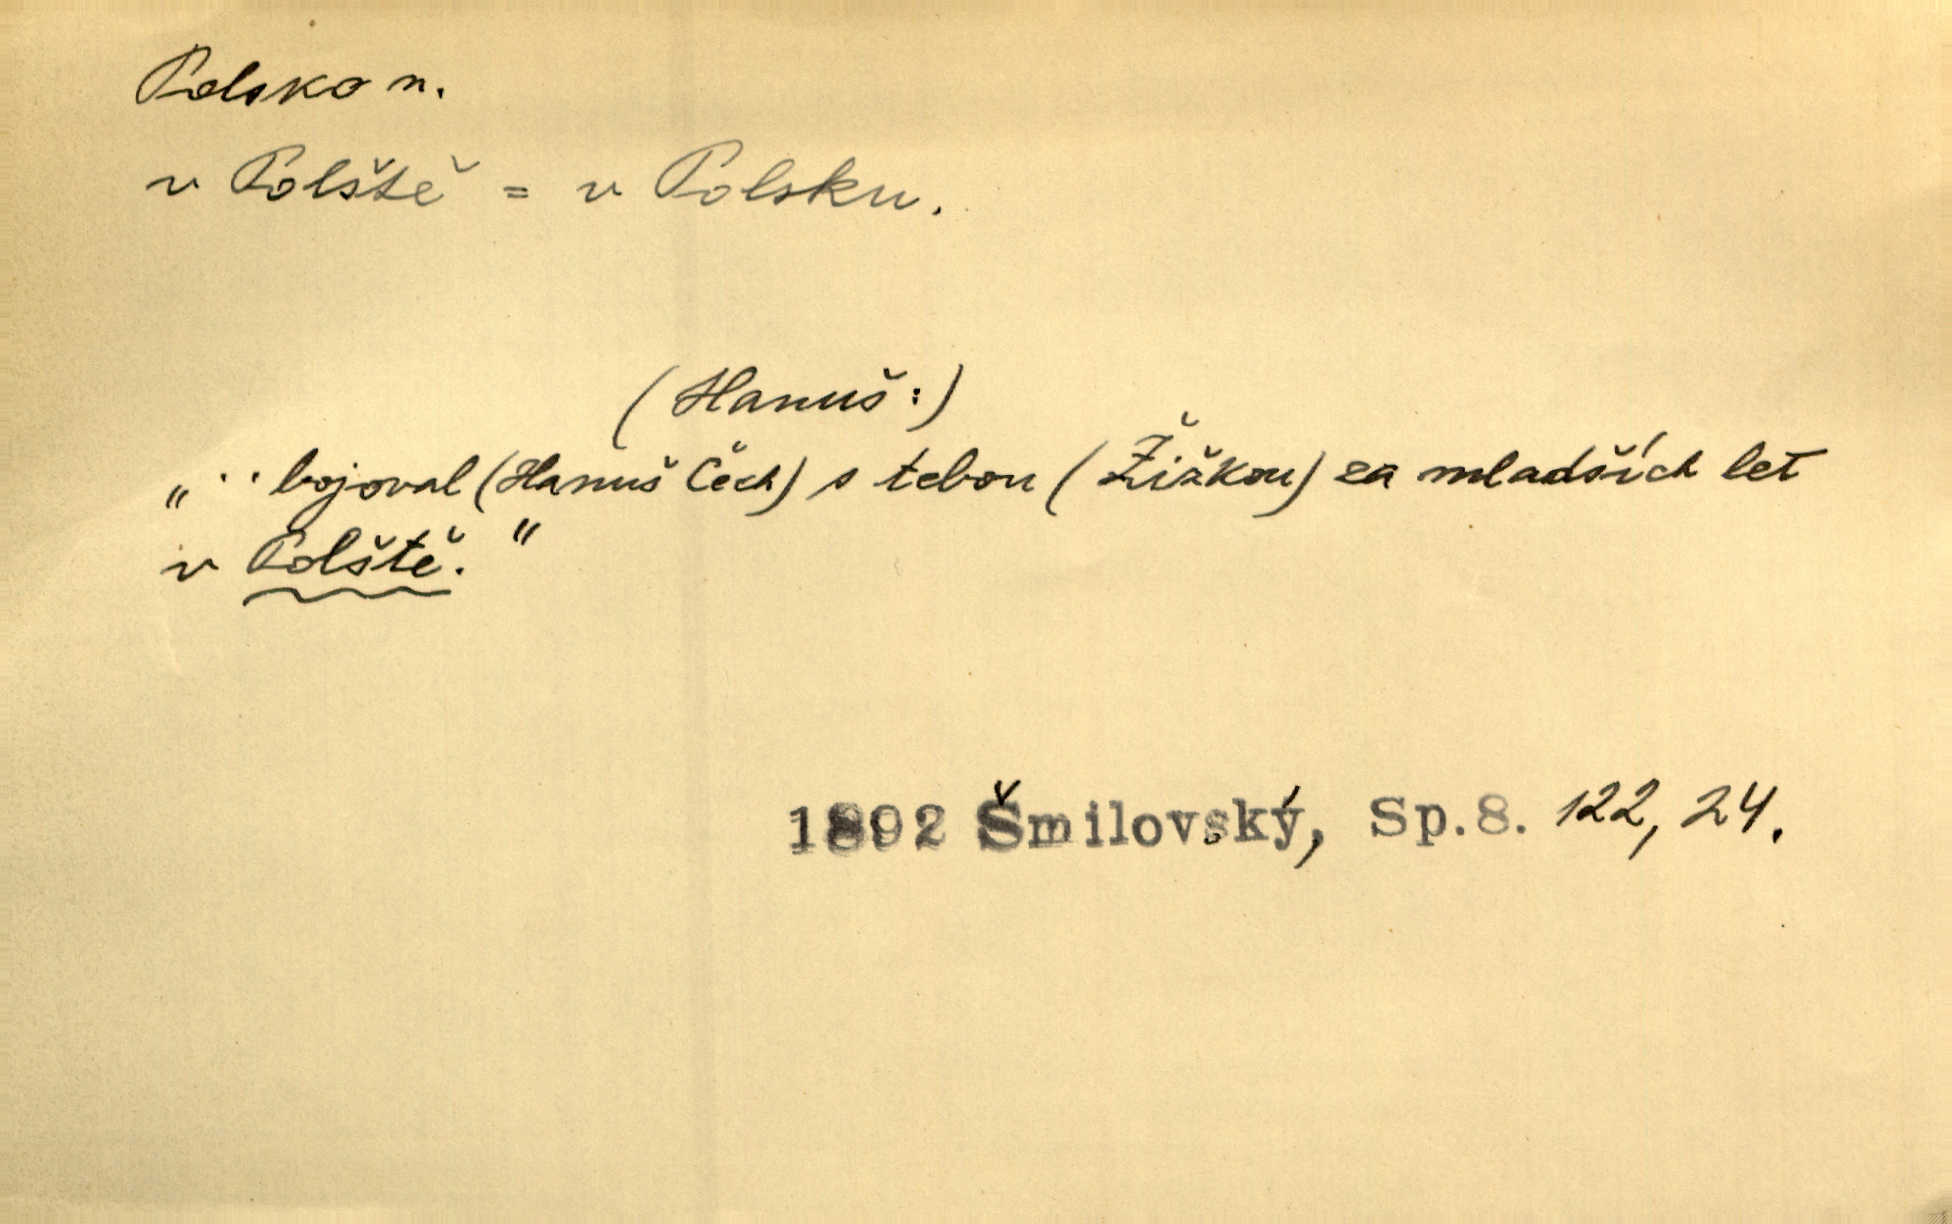 Polsko n.
v Polště = v Polsku.
(Hanuš:)
„ ‥ bojoval (Hanuš Čech) s tebou (Žižkou) za mladších let
v Polště."
1892 Šmilovský, Sp.8. 122, 24.